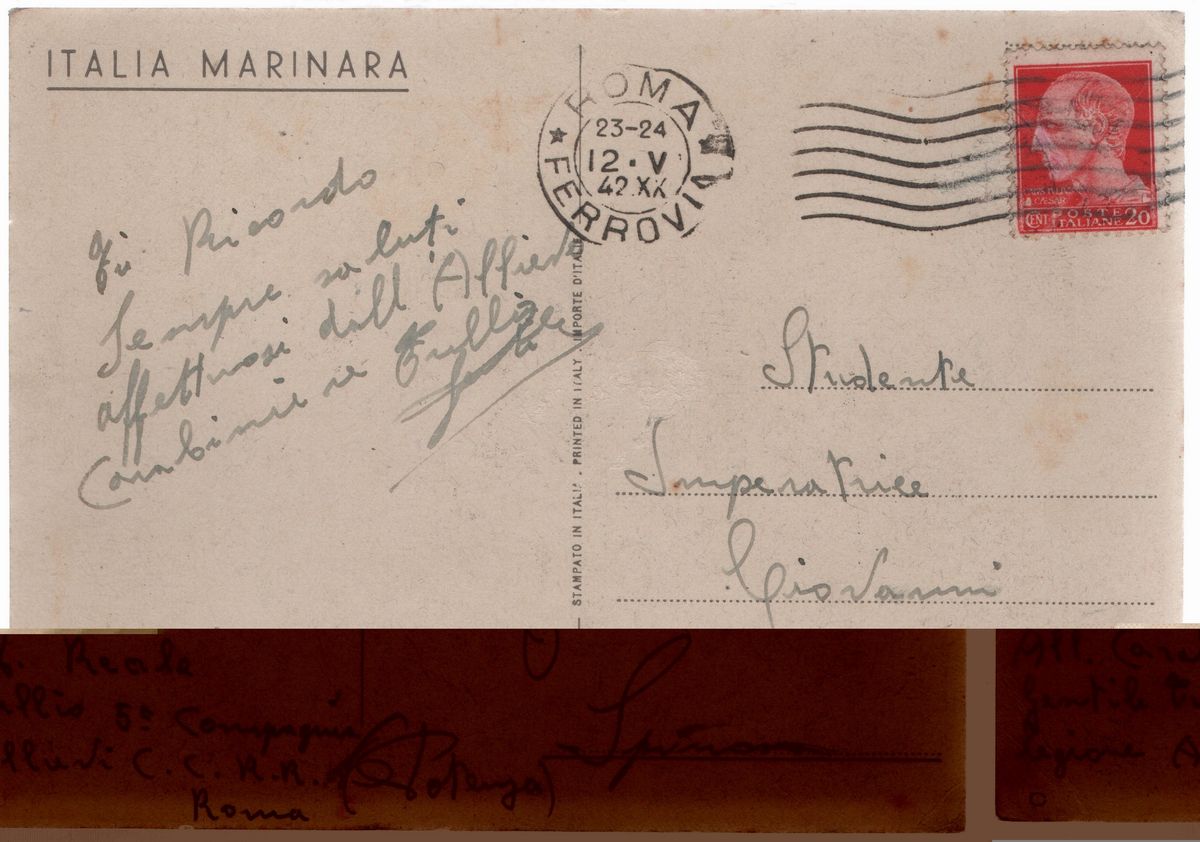 ITALIA MARINARA
ROMA FERROVIA
23-24
12·V
42.XX
CAESAR
CENT POSTE ITALIANE 20
Ti Ricordo
Sempre saluti
affettuosi dall'Allievo
Carabiniere Tullio
STAMPATO IN ITALIA . PRINTED IN ITALY . IMPORTE D'ITALIE
Studente
Imperatrice
Giovanni
Reale
5ª Compagnia
C. C. R. R.
Roma
(Potenza)
All. Car
Gentile
legione